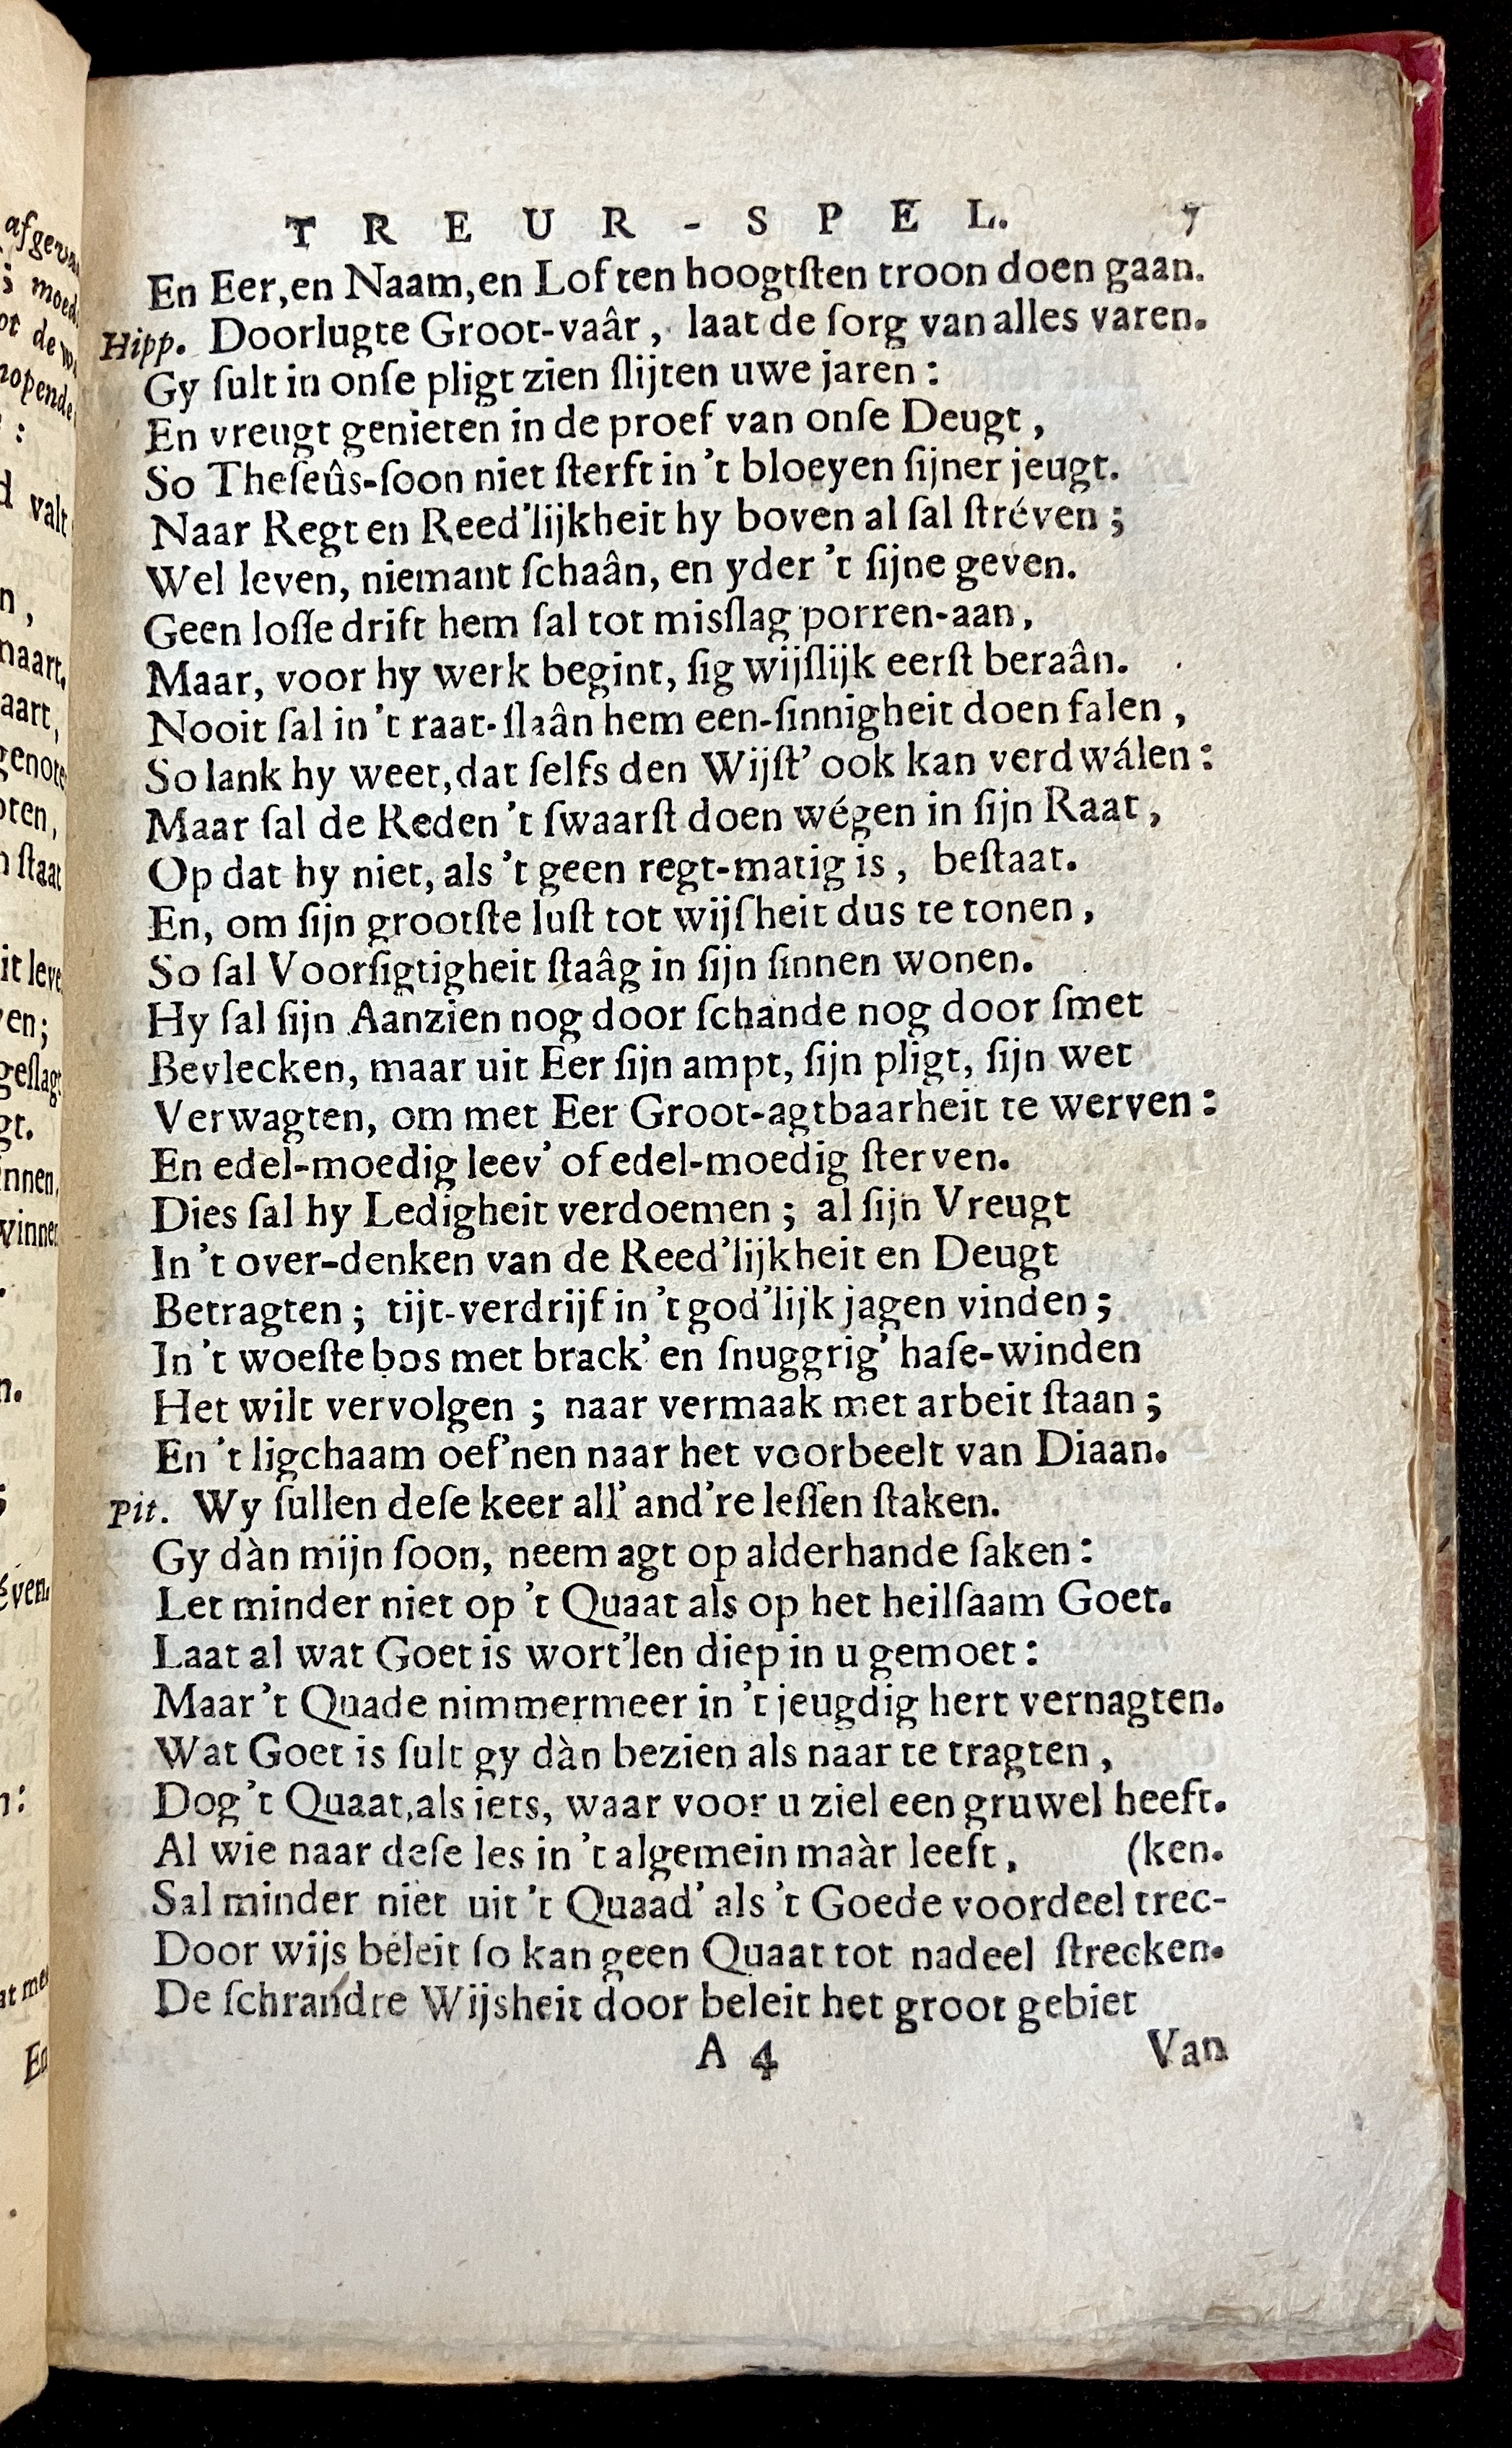 TREUR-SPEL. 7
En Eer, en Naam, en Lof ten hoogtſten troon doen gaan.
Hipp. Doorlugte Groot-vaâr, laat de ſorg van alles varen.
Gy ſult in onſe pligt zien ſlijten uwe jaren:
En vreugt genieten in de proef van onſe Deugt,
So Theſeûs-ſoon niet ſterft in 't bloeyen ſijner jeugt.
Naar Regt en Reed'lijkheit hy boven al ſal ſtréven;
Wel leven, niemant ſchaân, en yder 't ſijne geven.
Geen loſſe drift hem ſal tot misſlag porren-aan,
Maar, voor hy werk begint, ſig wijſlijk eerſt beraân.
Nooit ſal in 't raat-ſlaân hem een-ſinnigheit doen falen,
So lank hy weet, dat ſelfs den Wijſt' ook kan verdwálen:
Maar ſal de Reden 't ſwaarſt doen wégen in ſijn Raat,
Op dat hy niet, als 't geen regt-matig is, beſtaat.
En, om ſijn grootſte luſt tot wijſheit dus te tonen,
So ſal Voorſigtigheit ſtaâg in ſijn ſinnen wonen.
Hy ſal ſijn Aanzien nog door ſchande nog door ſmet
Bevlecken, maar uit Eer ſijn ampt, ſijn pligt, ſijn wet
Verwagten, om met Eer Groot-agtbaarheit te werven:
En edel-moedig leev' of edel-moedig ſterven.
Dies ſal hy Ledigheit verdoemen; al ſijn Vreugt
In 't over-denken van de Reed'lijkheit en Deugt
Betragten; tijt-verdrijf in 't god'lijk jagen vinden;
In 't woeſte bos met brack' en ſnuggrig' haſe-winden
Het wilt vervolgen; naar vermaak met arbeit ſtaan;
En 't ligchaam oef'nen naar het voorbeelt van Diaan.
Pit. Wy ſullen deſe keer all' and're leſſen ſtaken.
Gy dàn mijn ſoon, neem agt op alderhande ſaken:
Let minder niet op 't Quaat als op het heilſaam Goet.
Laat al wat Goet is wort'len diep in u gemoet:
Maar 't Quade nimmermeer in 't jeugdig hert vernagten.
Wat Goet is ſult gy dàn bezien als naar te tragten,
Dog 't Quaat, als iets, waar voor u ziel een gruwel heeft.
Al wie naar deſe les in 't algemein maàr leeft, (ken.
Sal minder niet uit 't Quaad' als 't Goede voordeel trec-
Door wijs beleit ſo kan geen Quaat tot nadeel ſtrecken.
De ſchrandre Wijsheit door beleit het groot gebiet
A 4 Van